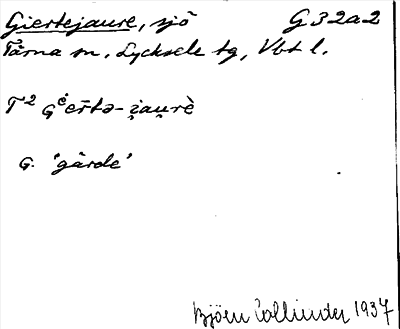 Giertejaure, sjö G32a2
Tärna sn, Lycksele tg, Vbt l.
T² Gėērtə-i̯au̯rè
G. 'gärde'
Björn Collinder 1937